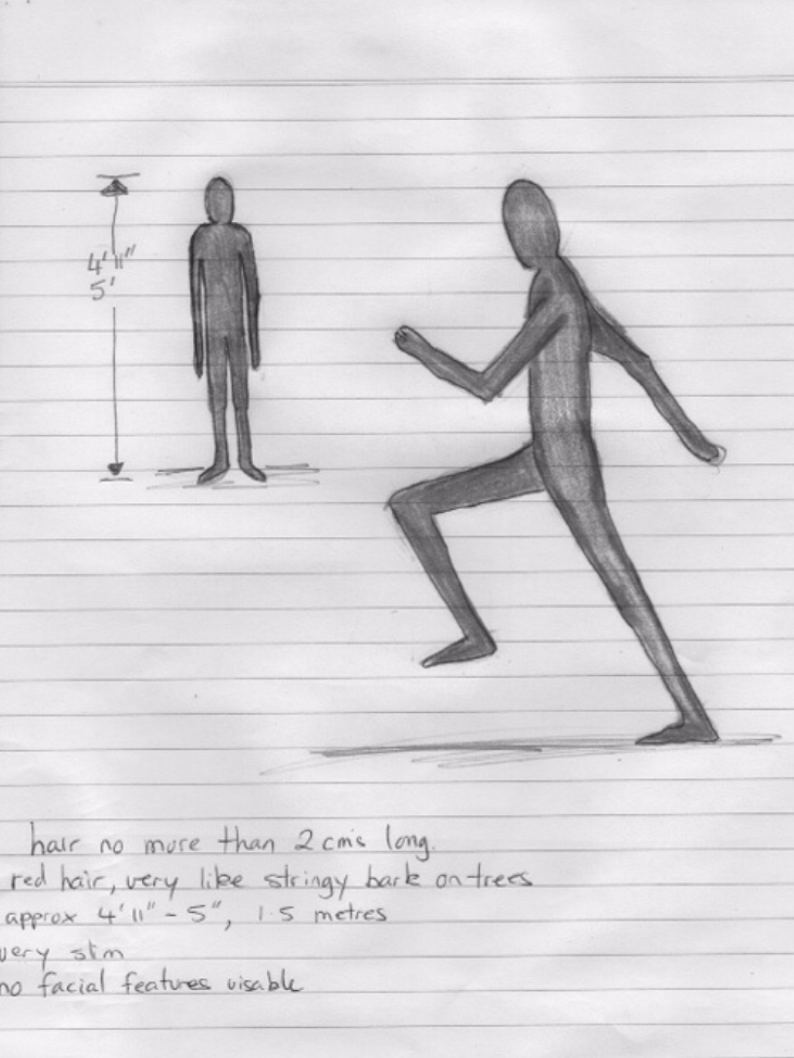 4'11"
5'
hair no more than 2 cm's long.
red hair, very like stringy bark on trees
approx 4'11" - 5", 1.5 metres
very slim
no facial features visable